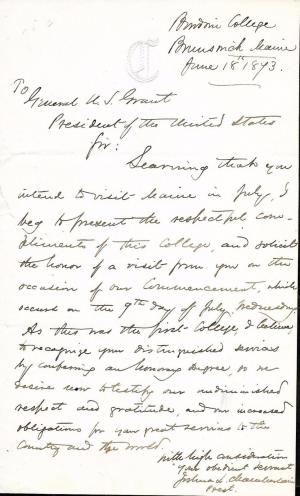 Bowdoin College
Brunswick Maine
June 18th 1873.
To
General U S Grant
President of the United States
Sir:
Learning that you
intend to visit Maine in July, I
beg to present the respectful com-
pliments of this College, and solicit
the honor of a visit from you on the
occasion of our Commencement, which
occurs on the 9th day of July, Wednesday.
As this was the first College, I believe,
to recognize your distinguished services
by conferring an honorary degree, so we
desire now to testify our undiminished
respect and gratitude, and our increased
obligations for your great services to the
Country and the world.
With high consideration
your obedient servant
Joshua L. Chamberlain
Prest.